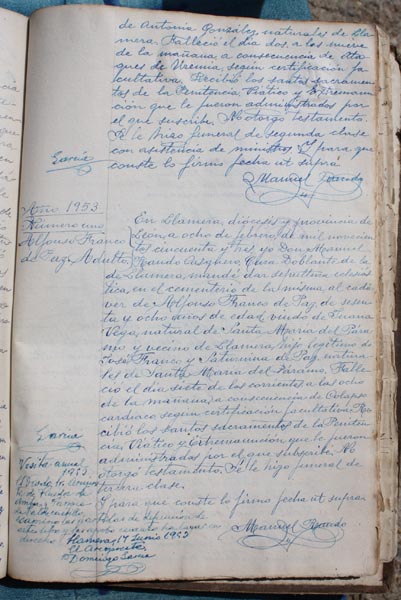 de Antonia González, naturales de Lla-
mera. Falleció el día dos, a las nueve
de la mañana, a consecuencia de Ata-
ques de Uremia, segun certificación fa-
cultativa. Recibió los santos sacramen-
tos de la Penitencia, Viático y Extremaun-
ción que le fueron administrados por
el que suscribe. No otorgó testamento.
Se le hizo funeral de segunda clase
con asistencia de ministros. Y para que
conste lo firmo fecha ut supra.
Manuel
Año 1953
Número uno
Alfonso Franco
de Paz, Adulto
En Llamera, diócesis y provincia de
León, a ocho de febrero, de mil novecien-
tos cincuenta y tres, yo Don Manuel
Cura Ecónomo de la
de Llamera, mandé dar sepultura eclesiás-
tica, en el cementerio de la misma, al cadá-
ver de Alfonso Franco de Paz, de sesen-
ta y ocho años de edad, viudo de Juana
Vega, natural de Santa María del Pára-
mo y vecino de Llamera, hijo legítimo de
José Franco y Saturnina de Paz, natura-
les de Santa María del Páramo. Falle-
ció el día siete de los corrientes a las ocho
de la mañana, a consecuencia de Colapso
cardiaco segun certificación facultativa. Re-
cibió los santos sacramentos de la Peniten-
cia, Viático y Extremaunción que le fueron
administrados por el que subscribe. No
otorgó testamento. Se le hizo funeral de
tercera clase.
Y para que conste lo firmo fecha ut supra.
Manuel
1953
17 Junio 1953
El Arcipreste
Domingo